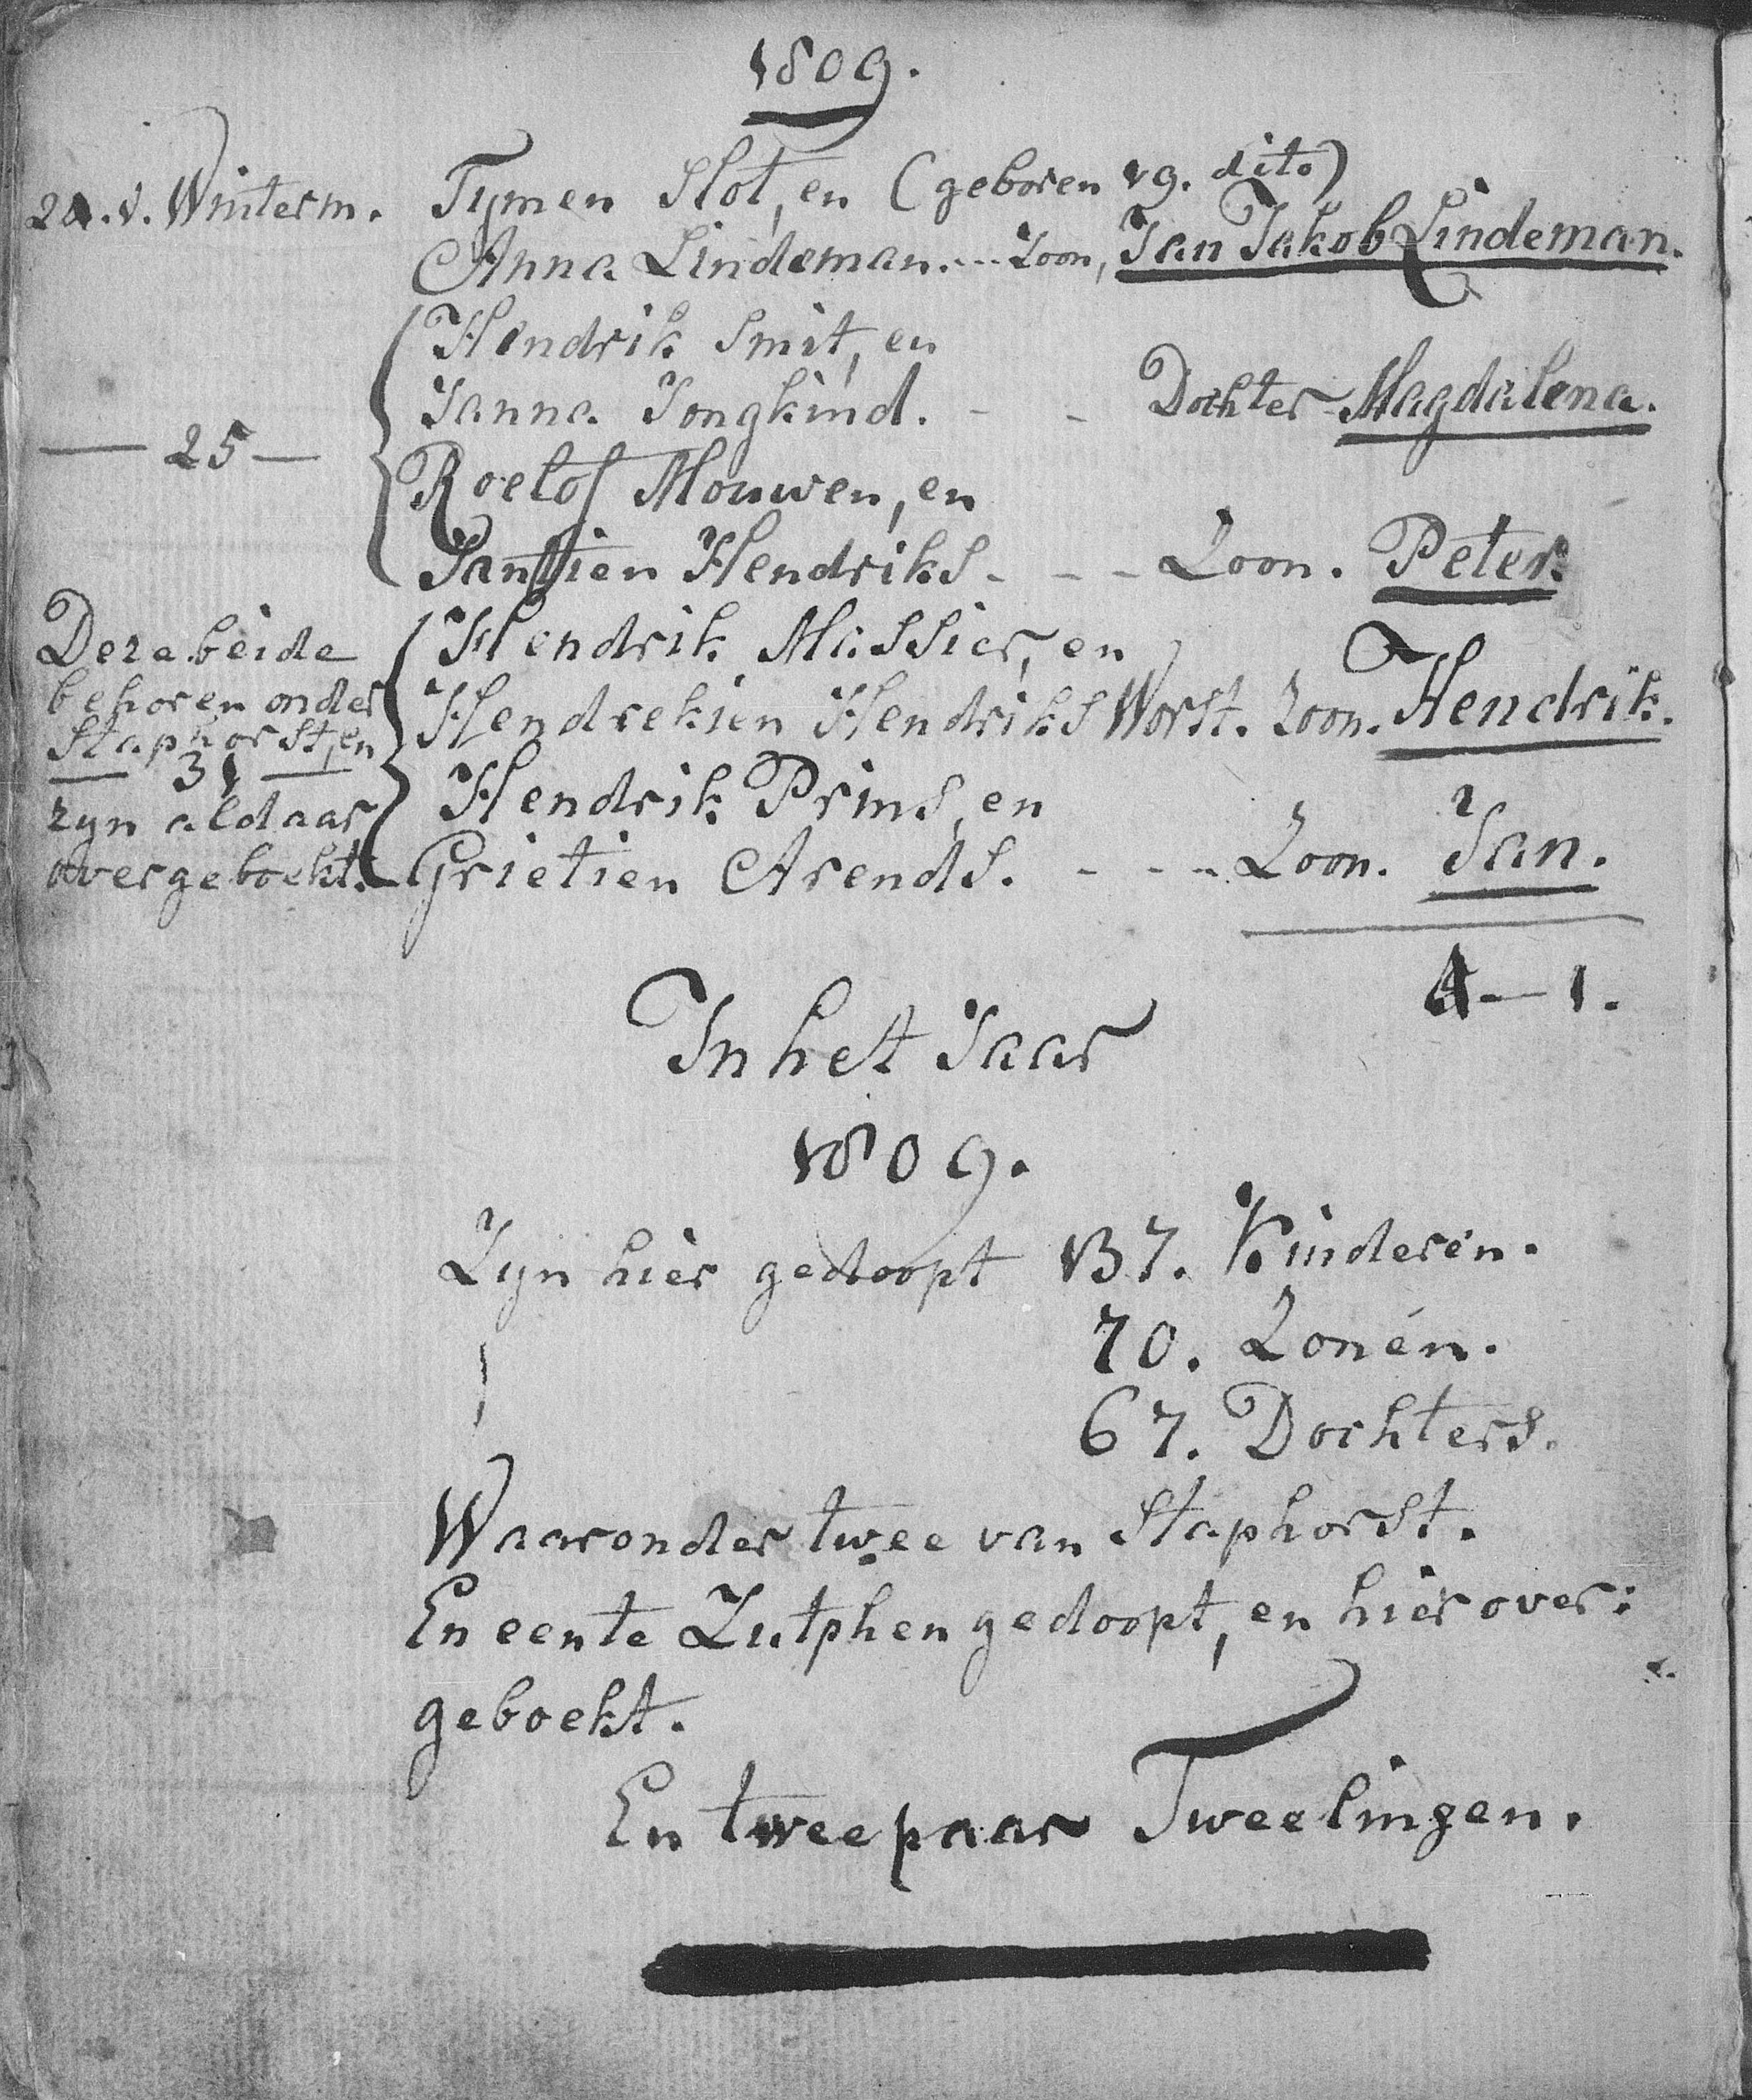 1809.
24. v. Winterm. Tymen Slot, en (geboren 19. dito)
Anna Lindeman. --- Zoon, Jan Jakob Lindeman.
Hendrik Smit, en
Janna Jongkind. - - Dochter Magdalena.
— 25 —
Roelof Mouwen, en
Jantien Hendriks. - - - Zoon. Peter.
Deze beide
behoren onder
Staphorst, en
— 31 —
zyn aldaar
overgeboekt.
Hendrik Massier, en
Hendrekien Hendriks Worst. Zoon. Hendrik.
Hendrik Prins, en
Grietien Arends. - - - Zoon. Jan.
4 — 1.
In het Jaar
1809.
Zyn hier gedoopt 137. Kinderen.
70. Zonen.
67. Dochters.
Waaronder twee van Staphorst.
En een te Zutphen gedoopt, en hier over:
geboekt.
En twee paar Tweelingen.